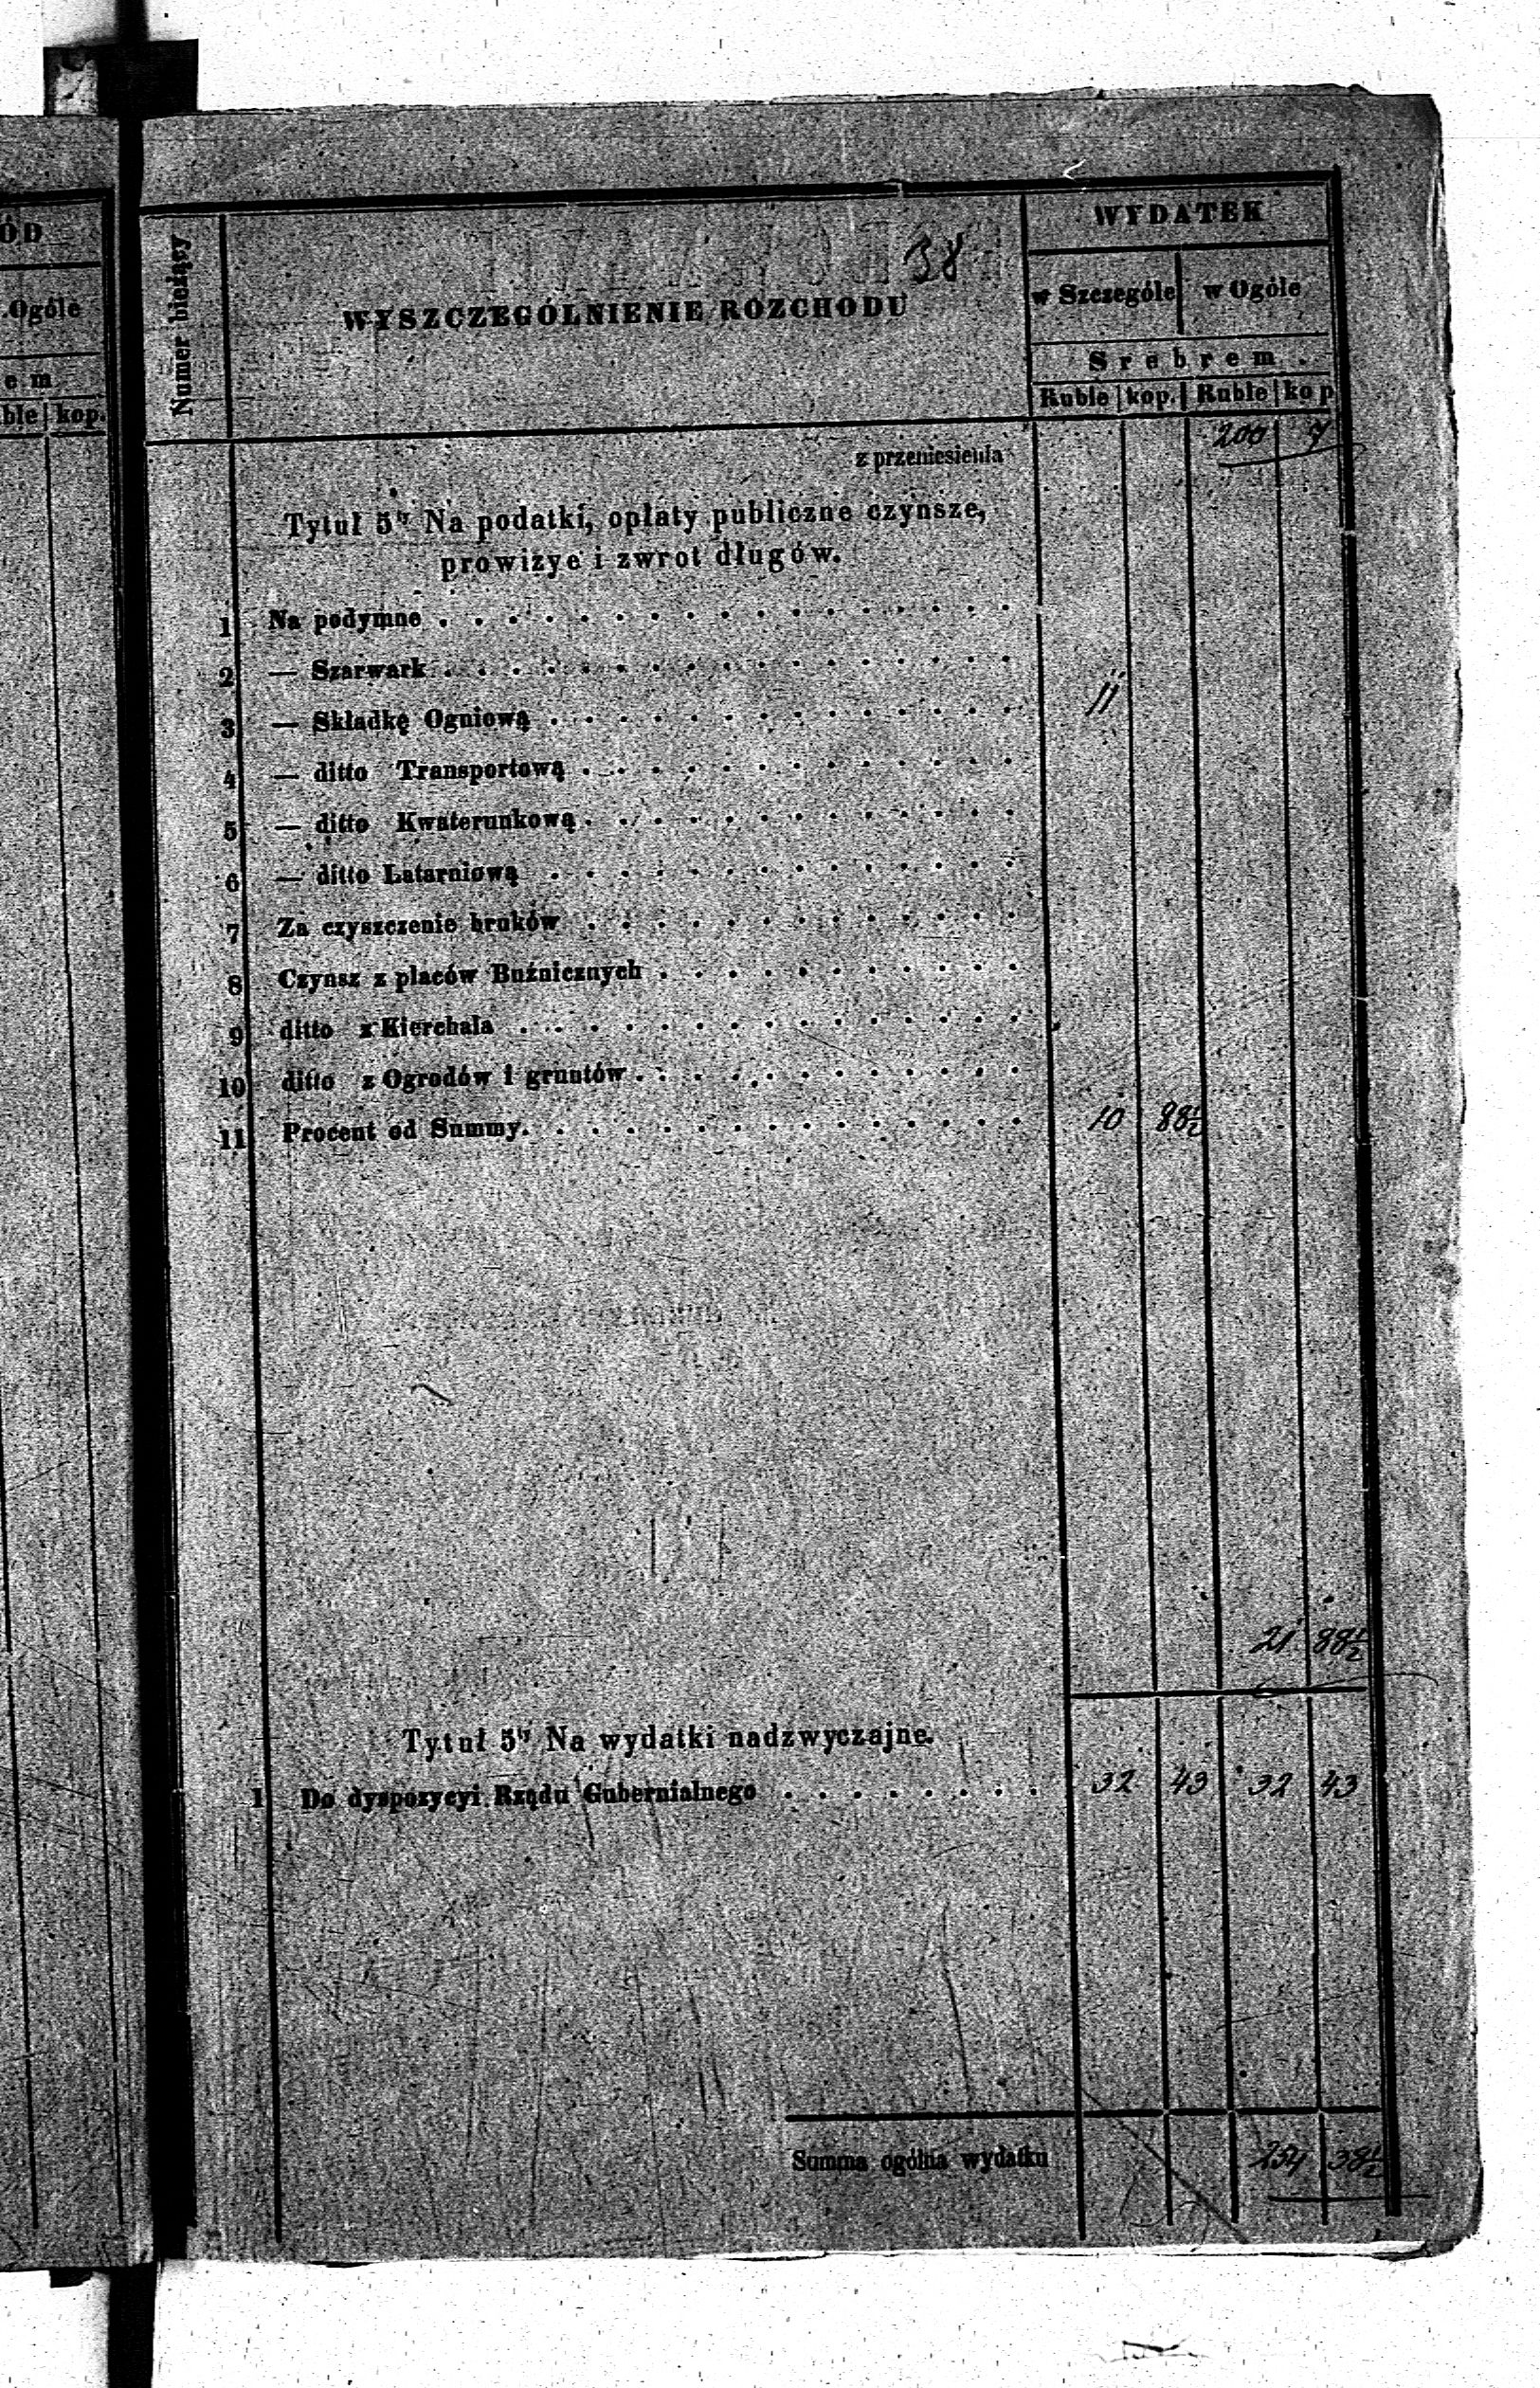 ÓD
Ogóle
em
ble kop.
38
Numer bieżący
WYSZCZEGÓLNIENIE ROZCHODU
WYDATEK
w Szczególe w Ogóle
Srebrem
Ruble kop. Ruble kop
z przeniesienia 200 7
Tytuł 5ty Na podatki, opłaty publiczne czynsze,
prowizye i zwrot długów.
1 Na podymne
2 — Szarwark
3 — Składkę Ogniową 11
4 — ditto Transportową
5 — ditto Kwaterunkową
6 — ditto Latarniową
7 Za czyszczenie bruków
8 Czynsz z placów Bużnicznych
9 ditto z Kierchala
10 ditto z Ogrodów i gruntów
11 Procent od Summy 10 88½
21 88½
Tytuł 5ty Na wydatki nadzwyczajne.
1 Do dyspozycyi Rządu Gubernialnego 32 43 32 43
Summa ogólna wydatku 254 38½